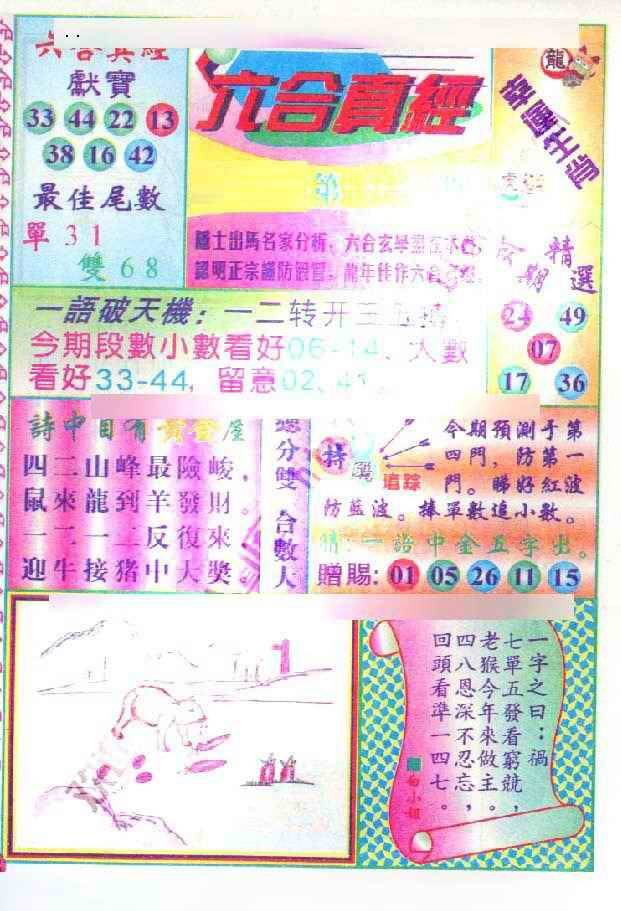 六合真經
獻寶
33 44 22 13
38 16 42
最佳尾數
單31
雙68
六合真經
龍
隱士出馬名家分析，六合玄學盡在本
今期
精選
24 49
07
17 36
一語破天機：一二转开三五
今期段數小數看好06-14、大數
看好33-44，留意02、41
詩中自有黃金屋
四二山峰最險峻，
鼠來龍到羊發財。
一二一二反復來
迎牛接猪中大獎。
總分雙 合數大
特
追踪
今期預測于第
四門，防第一
門。睇好紅波
防藍波。捧單數追小數。
猜：一語中金五字出。
贈賜：01 05 26 11 15
1
一字之曰：禍
七單五發看窮競，
老猴今年來做主。
四八恩深不忍忘，
回頭看準一四七。
白小姐